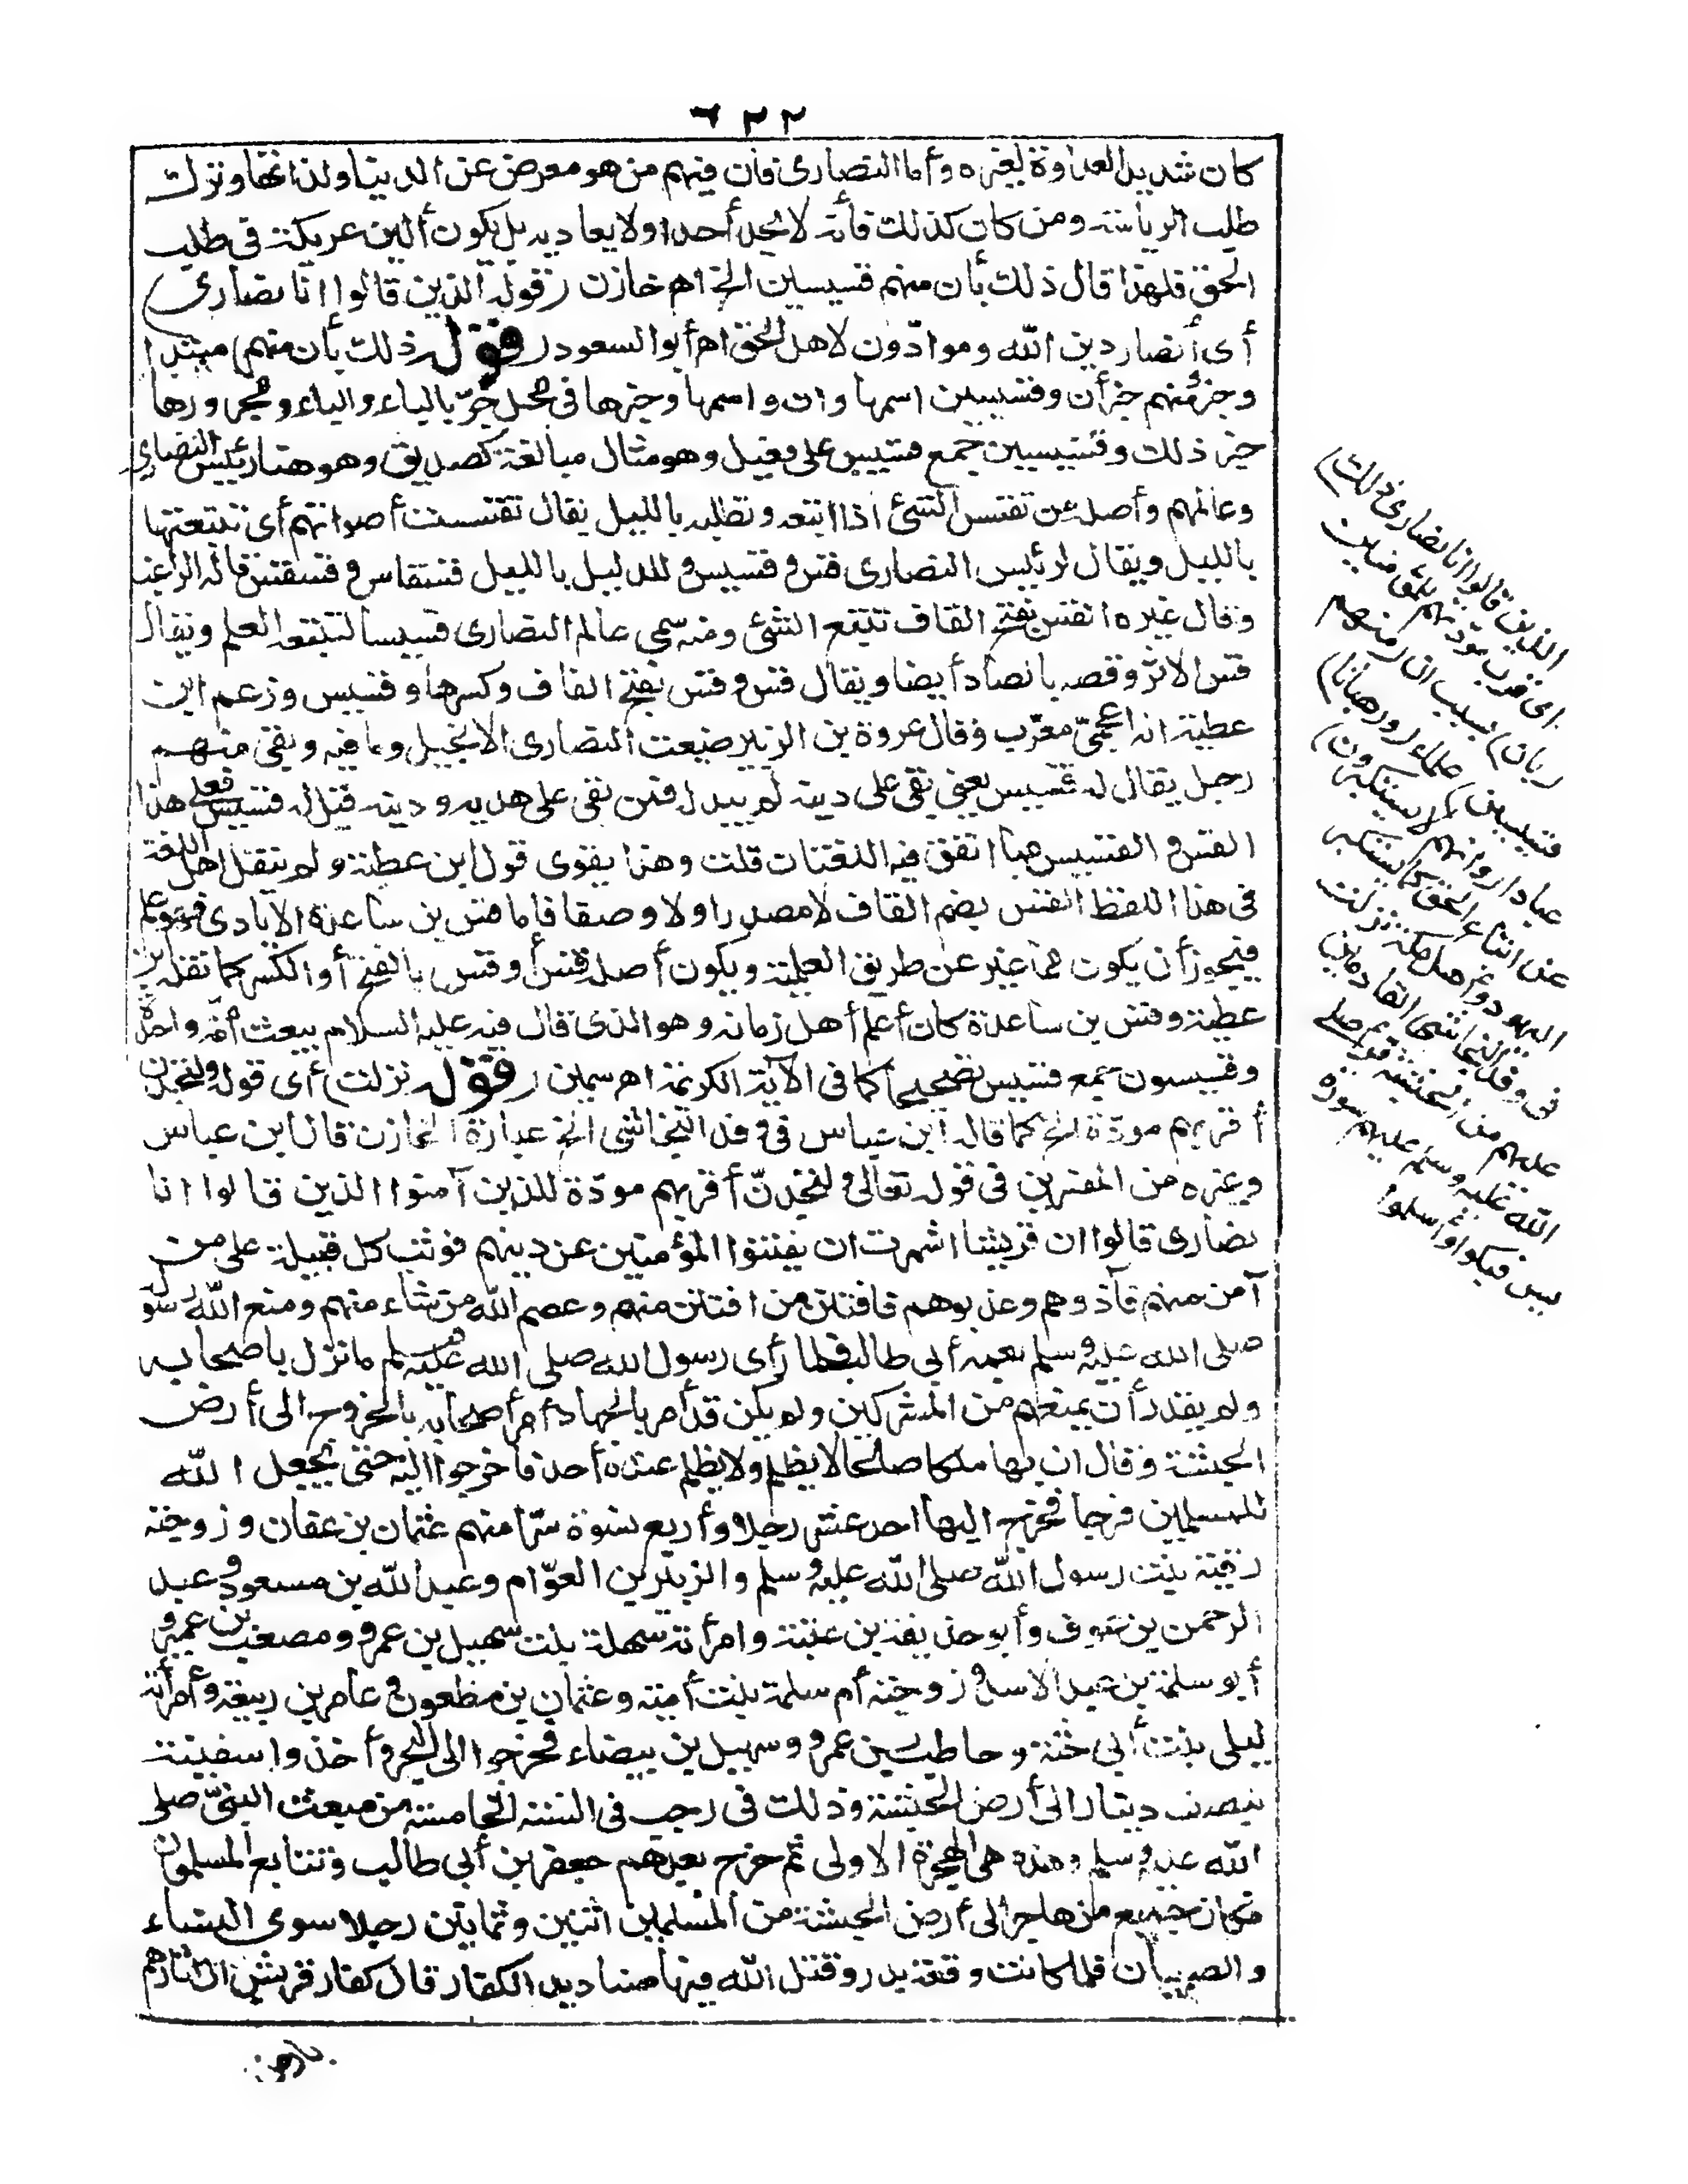 ٦٢٢
كان شديد العداوة لغيره وأما النصارى فان فيهم من هو معرض عن الدنيا ولذاتها وترك
طلب الرياسة ومن كان كذلك فأنه لا يحسد أحدا ولا يعاديه بل يكون ألين عريكة في طلب
الحق فلهذا قال ذلك بأن منهم قسيسين الخ اهـ خازن (قوله الذين قالوا انا نصارى)
أى أنصار دين الله وموادّون لاهل الحق اهـ أبو السعود (قوله ذلك بأن منهم) مبتدا
وخبر منهم خبر أن وقسيسين اسمها وان واسمها وخبرها في محل جرّ بالباء والباء ومجرورها
خبر ذلك وقسيسين جمع قسيس على فعيل وهو مثال مبالغة كصديق وهو هنا رئيس النصارى
وعالمهم وأصله من تقسس الشئ اذا اتبعه وتطلبه بالليل يقال تقسست أصواتهم أى تتبعتها
بالليل ويقال لرئيس النصارى قس وقسيس وللدليل بالليل قسقاس وقسقس قاله الراغب
وقال غيره القس بفتح القاف تتبع الشئ ومنه سمى عالم النصارى قسيسا لتتبعه العلم ويقال
قس الاثر وقصه بالصاد أيضا ويقال قس وقس بفتح القاف وكسرها وقسيس وزعم ابن
عطية انه اعجمىّ معرّب وقال عروة بن الزبير ضيعت النصارى الانجيل وما فيه وبقى منهم
رجل يقال له قسيس يعنى بقى على دينه لم يبدله فمن بقى على هديه ودينه قيل له قسيس فعلى هذا
القس والقسيس مما اتفق فيه اللغتان قلت وهذا يقوى قول ابن عطية ولم ينقل أهل اللغة
في هذا اللفظ القس بضم القاف لا مصدرا ولا وصفا فاما قس بن ساعدة الايادى فهو علم
فيجوز أن يكون مما غير عن طريق العلمية ويكون أصله قس أو قس بالفتح أو الكسر كما نقله ابن
عطية وقس بن ساعدة كان أعلم أهل زمانه وهو الذى قال فيه عليه السلام يبعث أمة واحدة
وقسيسون جمع قسيس تصحيحا كما في الآية الكريمة اهـ سمين (قوله نزلت) أى قوله ولتجدن
أقربهم مودّة الخ كما قاله ابن عباس في وفد النجاشى الخ عبارة الخازن قال ابن عباس
وغيره من المفسرين في قوله تعالى ولتجدنّ أقربهم مودّة للذين آمنوا الذين قالوا انا
نصارى قالوا ان قريشا ائتمرت ان يفتنوا المؤمنين عن دينهم فوثب كل قبيلة على من
آمن منهم فآذوهم وعذبوهم فافتتن من افتتن منهم وعصم الله من شاء منهم ومنع الله رسوله
صلى الله عليه وسلم بعمه أبى طالب فلما رأى رسول الله صلى الله عليه وسلم ما نزل باصحابه
ولم يقدر أن يمنعهم من المشركين ولم يكن قد أمر بالجهاد أمر أصحابه بالخروج الى أرض
الحبشة وقال ان بها ملكا صالحا لا يظلم ولا يظلم عنده أحد فاخرجوا اليه حتى يجعل الله
للمسلمين فرجا فخرج اليها احد عشر رجلا وأربع نسوة سرّا منهم عثمان بن عفان وزوجته
رقية بنت رسول الله صلى الله عليه وسلم والزبير بن العوّام وعبد الله بن مسعود وعبد
الرحمن بن عوف وأبو حذيفة بن عتبة وامرأته سهلة بنت سهيل بن عمرو ومصعب بن عمير و
أبو سلمة بن عبد الاسد وزوجته أم سلمة بنت أمية وعثمان بن مظعون وعامر بن ربيعة وامرأته
ليلى بنت أبى حثمة وحاطب بن عمرو وسهيل بن بيضاء فخرجوا الى البحر وأخذوا سفينة
بنصف دينار الى أرض الحبشة وذلك في رجب في السنة الخامسة من مبعث النبىّ صلى
الله عليه وسلم وهذه هى الهجرة الاولى ثم خرج بعدهم جعفر بن أبى طالب وتتابع المسلمون
فكان جميع من هاجر الى أرض الحبشة من المسلمين اثنين وثمانين رجلا سوى النساء
والصبيان فلما كانت وقعة بدر وقتل الله فيها صناديد الكفار قال كفار قريش ان ثاركم
الذين قالوا انا نصارى ذلك)
أى قرب مودتهم للمؤمنين
(بان) بسبب ان (منهم
قسيسين) علماء (ورهبانا)
عبادا (وانهم لا يستكبرون)
عن اتباع الحق كما يستكبر
اليهود وأهل مكة نزلت
فى وفد النجاشى القادمين
عليهم من الحبشة قرأ صلى
الله عليه وسلم عليهم سورة
يس فبكوا وأسلموا